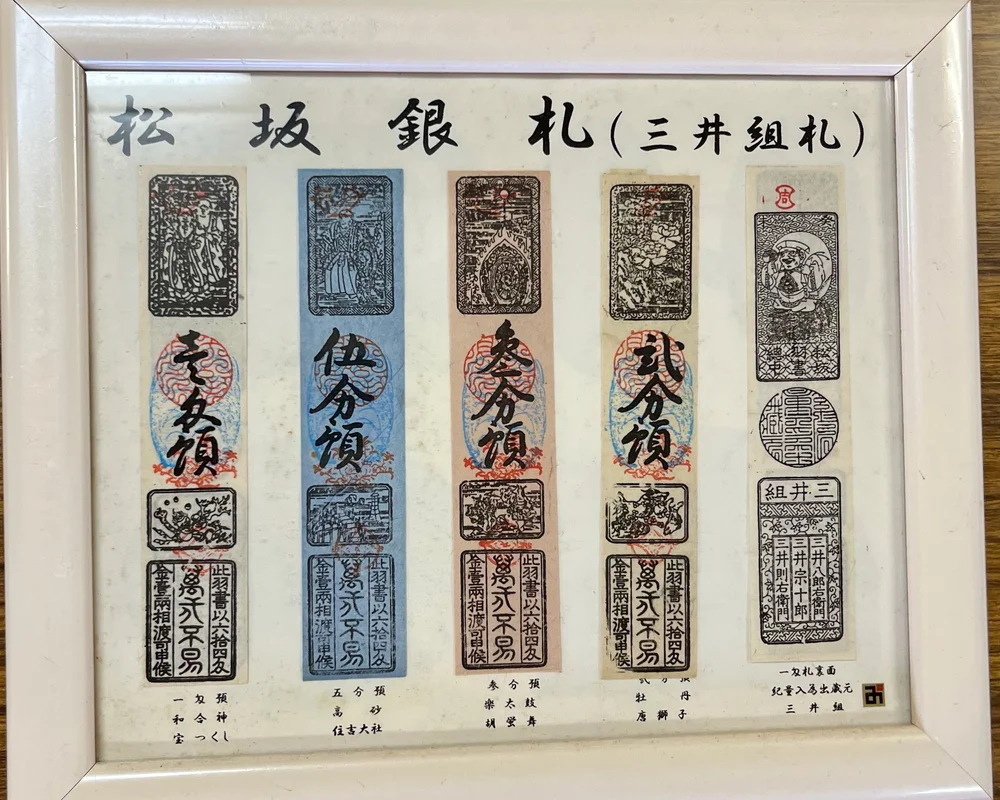 松坂銀札(三井組札)
壱匁預
此羽書以六拾四匁
萬代不易
金壹兩相渡可申候
伍分預
此羽書以六拾四匁
萬代不易
金壹兩相渡可申候
叁分預
此羽書以六拾四匁
萬代不易
金壹兩相渡可申候
弐分預
此羽書以六拾四匁
萬代不易
金壹兩相渡可申候
周
松坂
羽書
三井組
三井八郎右衛門
三井宗十郎
三井則右衛門
一匁預
和合神
宝つくし
五分預
高砂
住吉大社
参分預
楽太鼓
弐分預
牡丹
唐獅子
一匁札裏面
紀量入為出蔵元
三井組